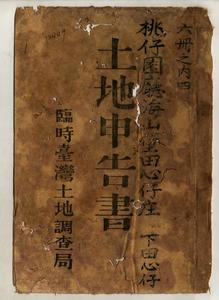 六冊之內四
桃仔園廳海山堡田心仔庄 下田心仔
土地申告書
臨時臺灣土地調查局